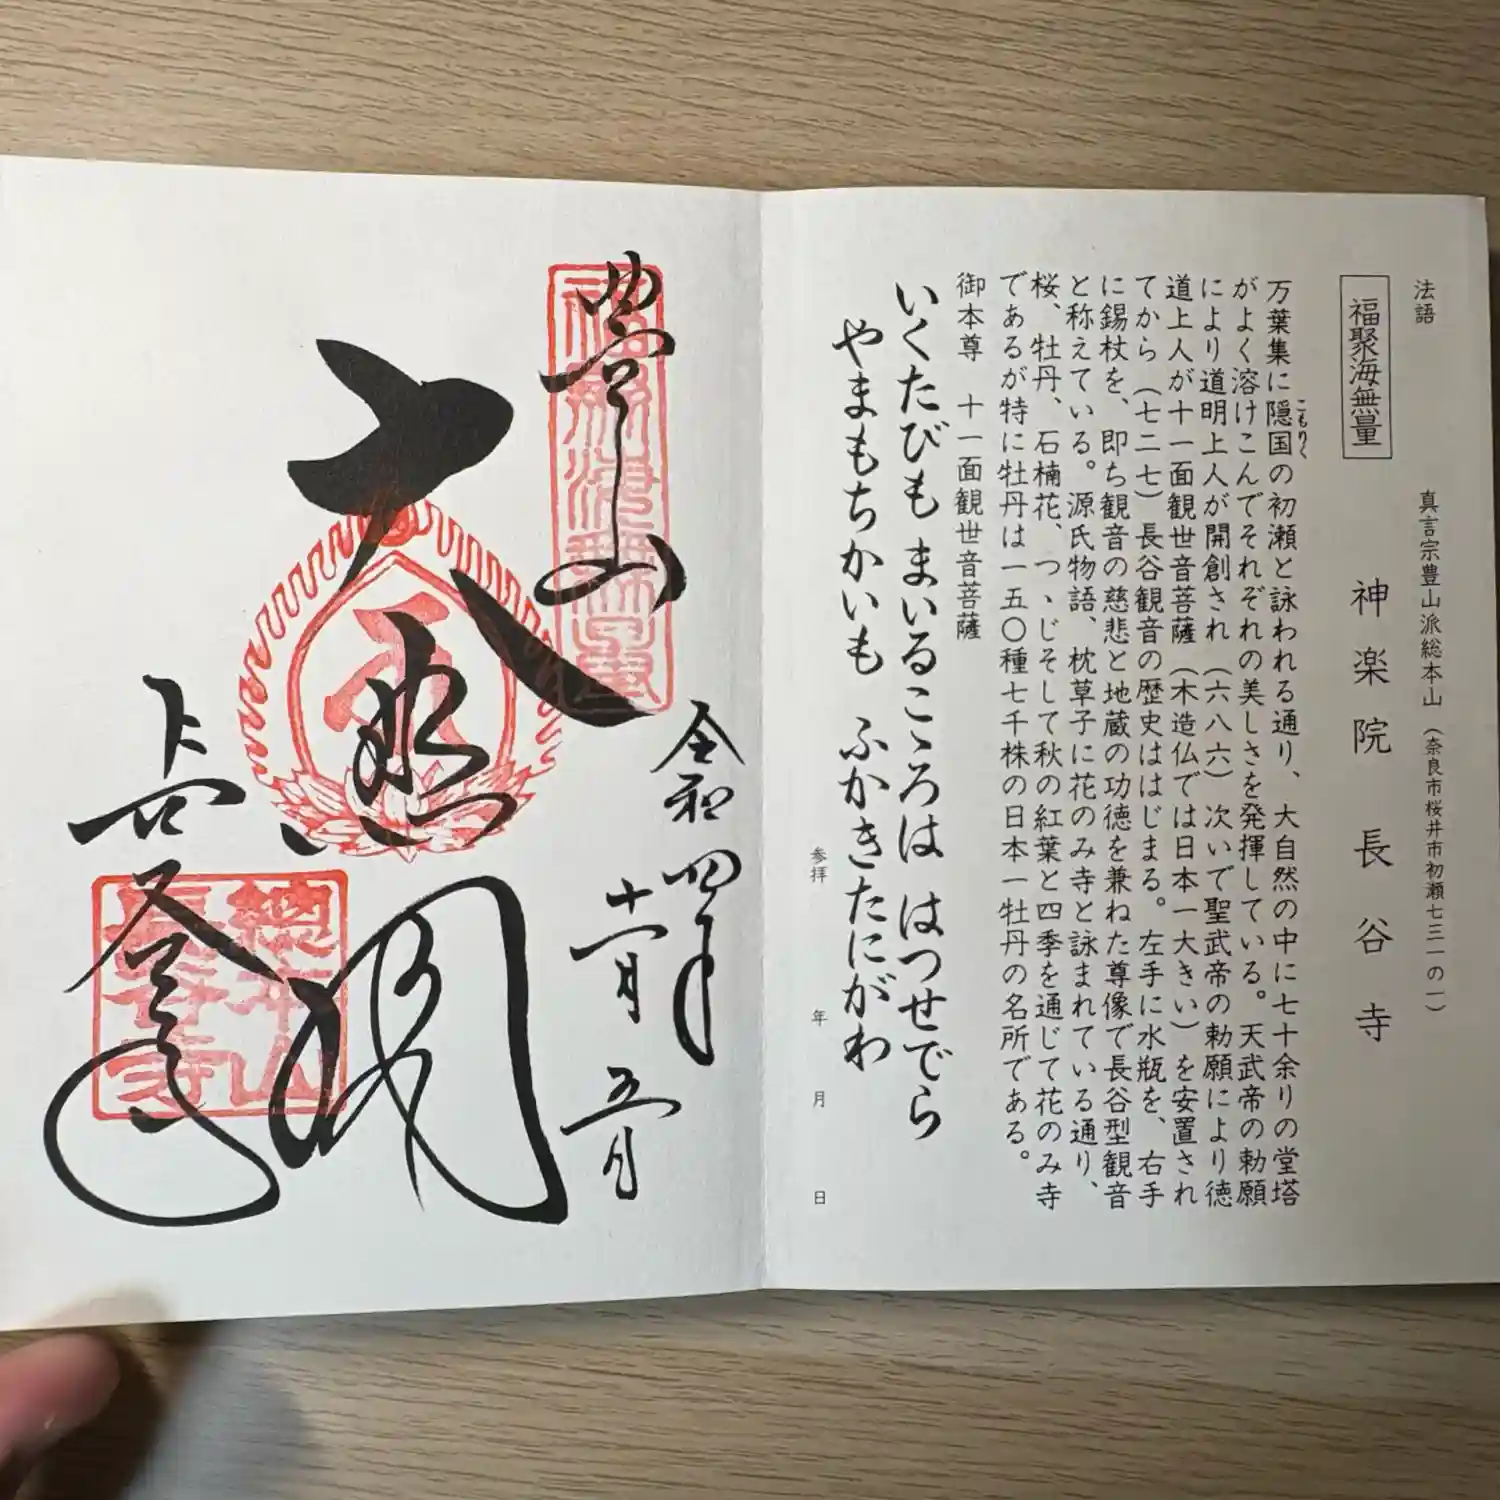 法語
福聚海無量
真言宗豊山派総本山(奈良市桜井市初瀬七三一の一)
神楽院 長谷寺
万葉集に隠国の初瀬と詠われる通り、大自然の中に七十余りの堂塔
こもりく
がよく溶けこんでそれぞれの美しさを発揮している。天武帝の勅願
により道明上人が開創され(六八六)次いで聖武帝の勅願により徳
道上人が十一面観世音菩薩(木造仏では日本一大きい)を安置され
てから(七二七)長谷観音の歴史ははじまる。左手に水瓶を、右手
に錫杖を、即ち観音の慈悲と地蔵の功徳を兼ねた尊像で長谷型観音
と称えている。源氏物語、枕草子に花のみ寺と詠まれている通り、
桜、牡丹、石楠花、つゝじそして秋の紅葉と四季を通じて花のみ寺
であるが特に牡丹は一五〇種七千株の日本一牡丹の名所である。
御本尊 十一面観世音菩薩
いくたびも まいるこゝろは はつせでら
やまもちかいも ふかきたにがわ
参拝 年 月 日
豊山
令和四年
十一月 五日
大悲閣
長谷寺
總本山
長谷寺